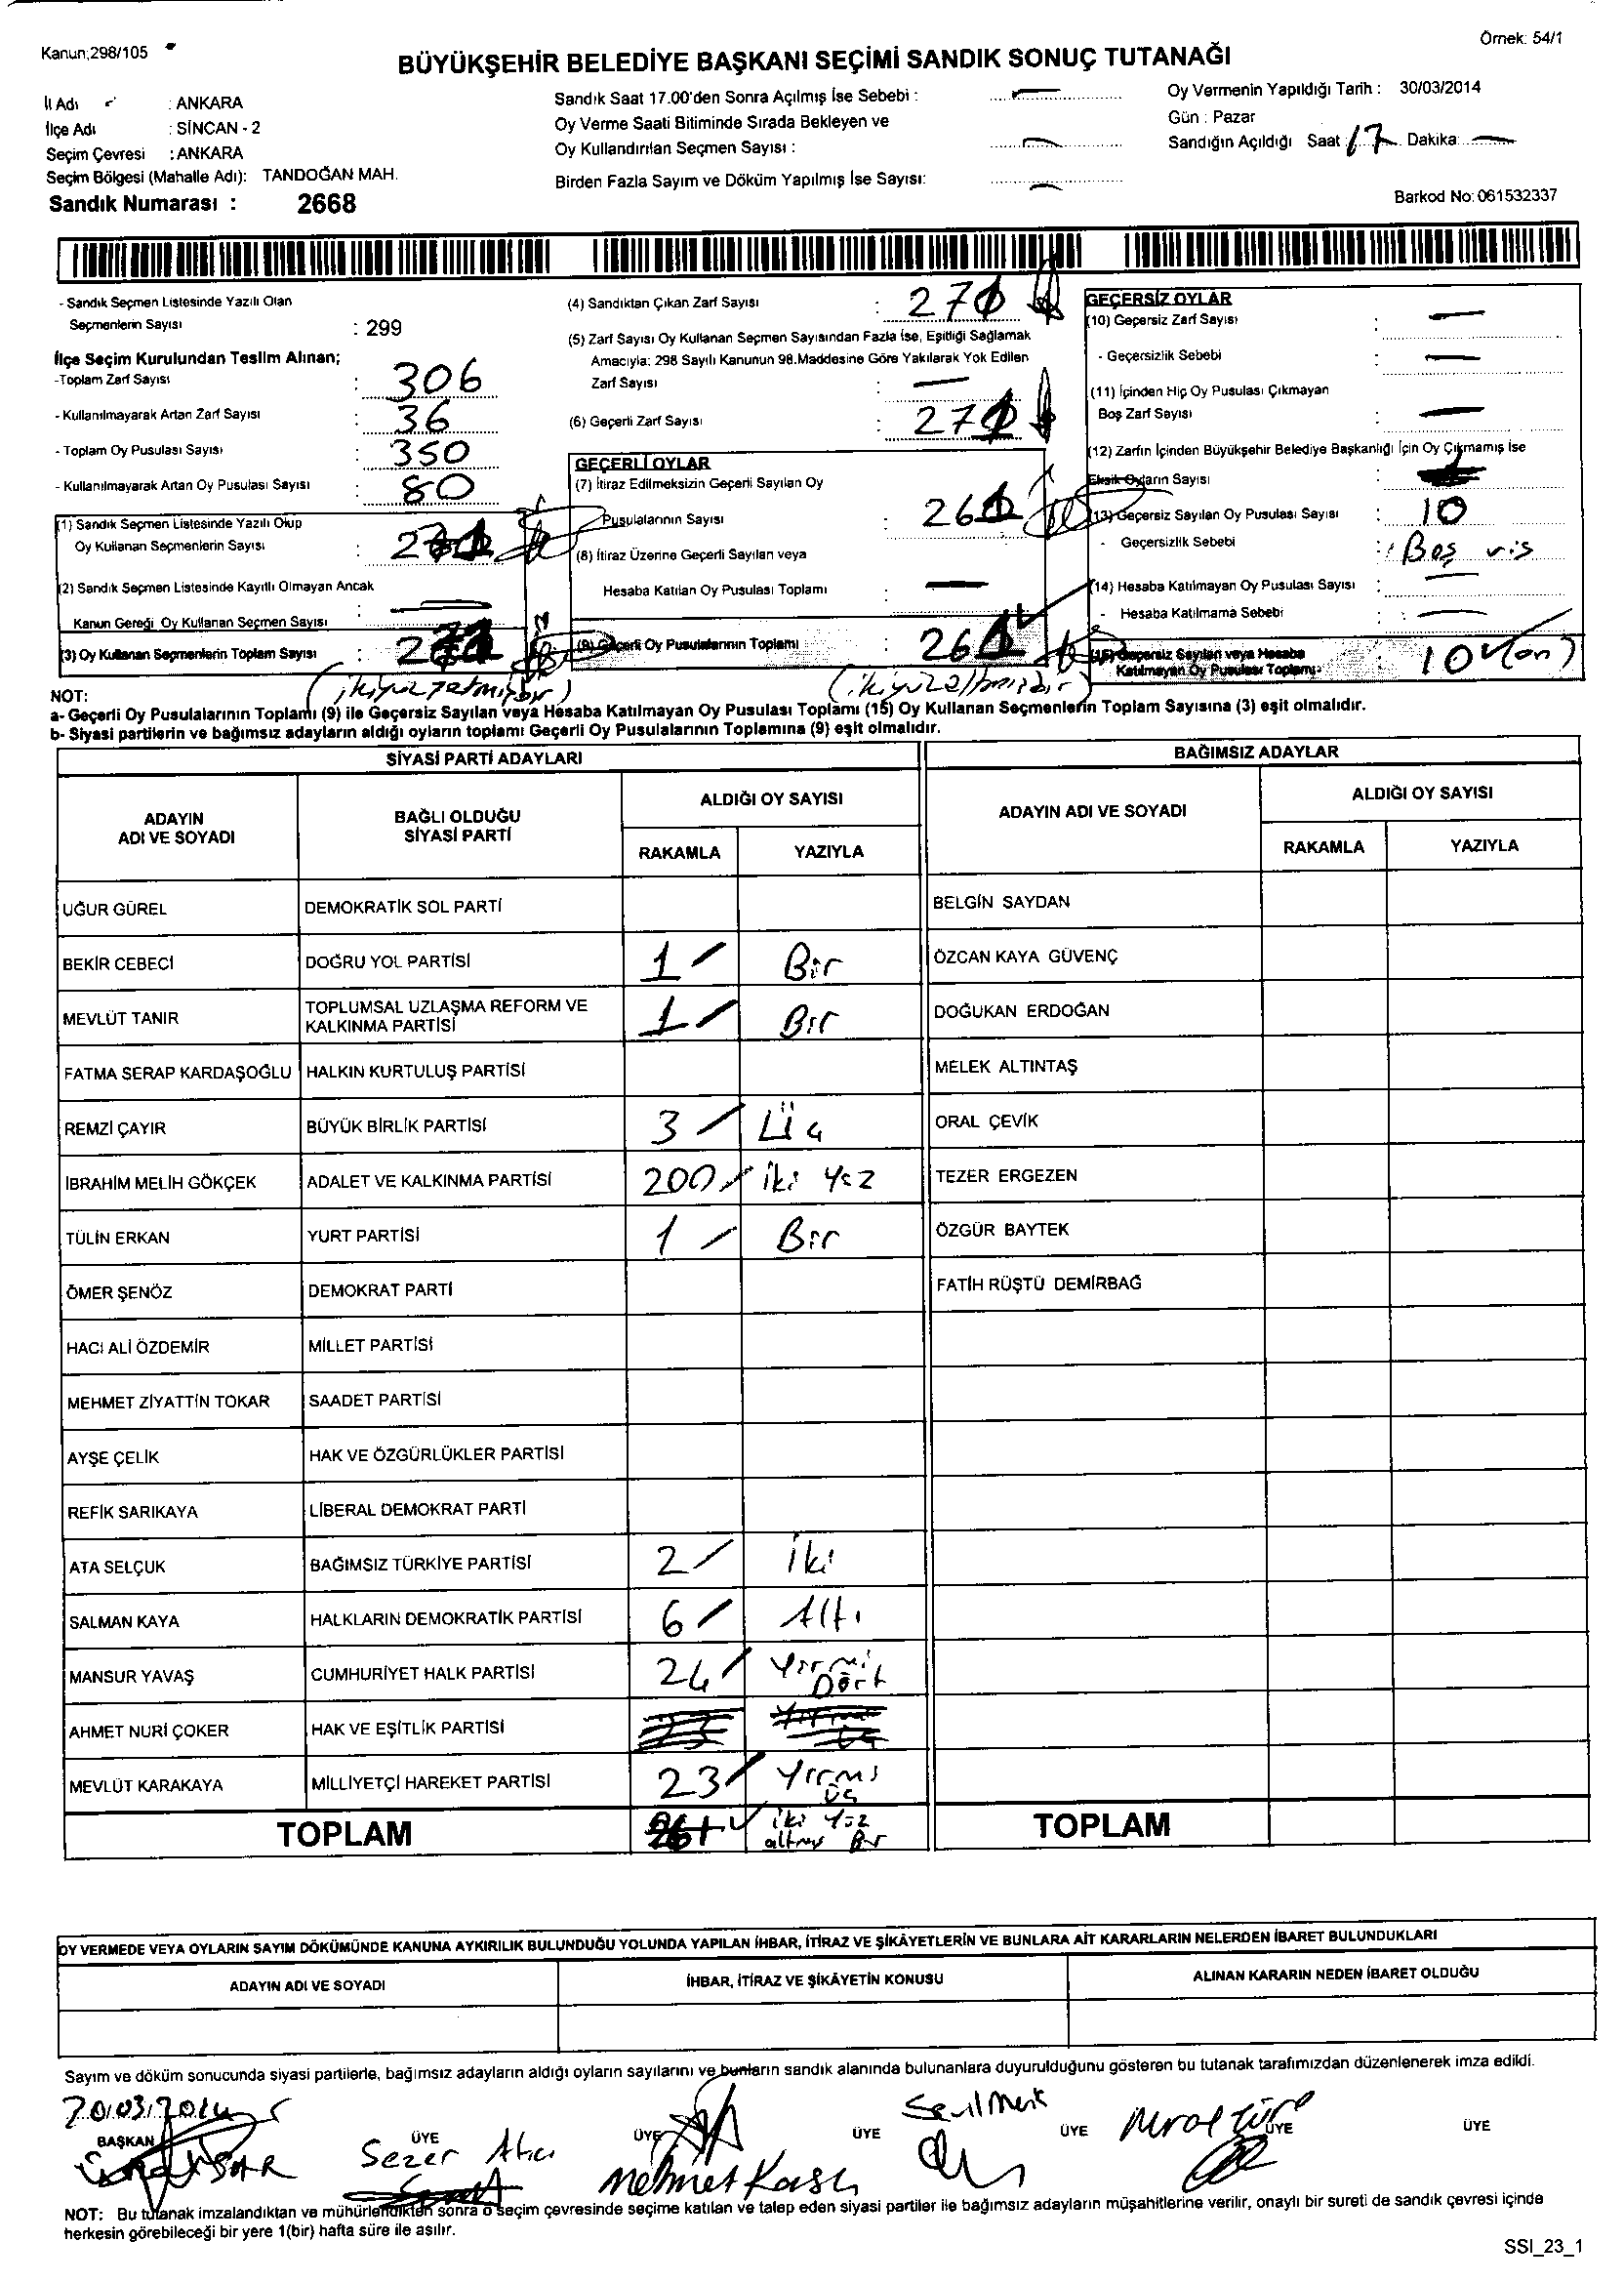 Kanun;298/105
Örnek: 54/1
BÜYÜKŞEHİR BELEDİYE BAŞKANI SEÇİMİ SANDIK SONUÇ TUTANAĞI
İl Adı : ANKARA
İlçe Adı : SİNCAN - 2
Seçim Çevresi : ANKARA
Seçim Bölgesi (Mahalle Adı): TANDOĞAN MAH.
Sandık Numarası : 2668
Sandık Saat 17.00'den Sonra Açılmış İse Sebebi : —
Oy Verme Saati Bitiminde Sırada Bekleyen ve
Oy Kullandırılan Seçmen Sayısı : —
Birden Fazla Sayım ve Döküm Yapılmış İse Sayısı: —
Oy Vermenin Yapıldığı Tarih : 30/03/2014
Gün : Pazar
Sandığın Açıldığı Saat : 17 Dakika: —
Barkod No: 061532337
- Sandık Seçmen Listesinde Yazılı Olan
Seçmenlerin Sayısı : 299
İlçe Seçim Kurulundan Teslim Alınan;
-Toplam Zarf Sayısı : 306
- Kullanılmayarak Artan Zarf Sayısı : 36
- Toplam Oy Pusulası Sayısı : 350
- Kullanılmayarak Artan Oy Pusulası Sayısı : 80
(1) Sandık Seçmen Listesinde Yazılı Olup
Oy Kullanan Seçmenlerin Sayısı : 271
(2) Sandık Seçmen Listesinde Kayıtlı Olmayan Ancak
Kanun Gereği Oy Kullanan Seçmen Sayısı : —
(3) Oy Kullanan Seçmenlerin Toplam Sayısı : 271
(ikiyüzyetmişbir)
(4) Sandıktan Çıkan Zarf Sayısı : 271
(5) Zarf Sayısı Oy Kullanan Seçmen Sayısından Fazla İse, Eşitliği Sağlamak
Amacıyla: 298 Sayılı Kanunun 98.Maddesine Göre Yakılarak Yok Edilen
Zarf Sayısı : —
(6) Geçerli Zarf Sayısı : 271
GEÇERLİ OYLAR
(7) İtiraz Edilmeksizin Geçerli Sayılan Oy
Pusulalarının Sayısı : 261
(8) İtiraz Üzerine Geçerli Sayılan veya
Hesaba Katılan Oy Pusulası Toplamı : —
(9) Geçerli Oy Pusulalarının Toplamı : 261
(ikiyüzaltmışbir)
GEÇERSİZ OYLAR
(10) Geçersiz Zarf Sayısı : —
- Geçersizlik Sebebi : —
(11) İçinden Hiç Oy Pusulası Çıkmayan
Boş Zarf Sayısı : —
(12) Zarfın İçinden Büyükşehir Belediye Başkanlığı İçin Oy Çıkmamış İse
Eksik Oyların Sayısı :
(13) Geçersiz Sayılan Oy Pusulası Sayısı : 10
- Geçersizlik Sebebi : Boş
(14) Hesaba Katılmayan Oy Pusulası Sayısı : —
- Hesaba Katılmama Sebebi : —
(15) Geçersiz Sayılan veya Hesaba
Katılmayan Oy Pusulası Toplamı: : 10 (on)
NOT:
a- Geçerli Oy Pusulalarının Toplamı (9) ile Geçersiz Sayılan veya Hesaba Katılmayan Oy Pusulası Toplamı (15) Oy Kullanan Seçmenlerin Toplam Sayısına (3) eşit olmalıdır.
b- Siyasi partilerin ve bağımsız adayların aldığı oyların toplamı Geçerli Oy Pusulalarının Toplamına (9) eşit olmalıdır.
SİYASİ PARTİ ADAYLARI
ADAYIN ADI VE SOYADI
BAĞLI OLDUĞU SİYASİ PARTİ
ALDIĞI OY SAYISI
RAKAMLA YAZIYLA
UĞUR GÜREL DEMOKRATİK SOL PARTİ
BEKİR CEBECİ DOĞRU YOL PARTİSİ 1 / Bir
MEVLÜT TANIR TOPLUMSAL UZLAŞMA REFORM VE KALKINMA PARTİSİ 1 / Bir
FATMA SERAP KARDAŞOĞLU HALKIN KURTULUŞ PARTİSİ
REMZİ ÇAYIR BÜYÜK BİRLİK PARTİSİ 3 / Üç
İBRAHİM MELİH GÖKÇEK ADALET VE KALKINMA PARTİSİ 200 / iki yüz
TÜLİN ERKAN YURT PARTİSİ 1 / Bir
ÖMER ŞENÖZ DEMOKRAT PARTİ
HACI ALİ ÖZDEMİR MİLLET PARTİSİ
MEHMET ZİYATTİN TOKAR SAADET PARTİSİ
AYŞE ÇELİK HAK VE ÖZGÜRLÜKLER PARTİSİ
REFİK SARIKAYA LİBERAL DEMOKRAT PARTİ
ATA SELÇUK BAĞIMSIZ TÜRKİYE PARTİSİ 2 / iki
SALMAN KAYA HALKLARIN DEMOKRATİK PARTİSİ 6 / Altı
MANSUR YAVAŞ CUMHURİYET HALK PARTİSİ 24 / Yirmi Dört
AHMET NURİ ÇOKER HAK VE EŞİTLİK PARTİSİ
MEVLÜT KARAKAYA MİLLİYETÇİ HAREKET PARTİSİ 23 / Yirmi üç
TOPLAM 261 iki yüz altmış Bir
BAĞIMSIZ ADAYLAR
ADAYIN ADI VE SOYADI
ALDIĞI OY SAYISI
RAKAMLA YAZIYLA
BELGİN SAYDAN
ÖZCAN KAYA GÜVENÇ
DOĞUKAN ERDOĞAN
MELEK ALTINTAŞ
ORAL ÇEVİK
TEZER ERGEZEN
ÖZGÜR BAYTEK
FATİH RÜŞTÜ DEMİRBAĞ
TOPLAM
OY VERMEDE VEYA OYLARIN SAYIM DÖKÜMÜNDE KANUNA AYKIRILIK BULUNDUĞU YOLUNDA YAPILAN İHBAR, İTİRAZ VE ŞİKÂYETLERİN VE BUNLARA AİT KARARLARIN NELERDEN İBARET BULUNDUKLARI
ADAYIN ADI VE SOYADI
İHBAR, İTİRAZ VE ŞİKÂYETİN KONUSU
ALINAN KARARIN NEDEN İBARET OLDUĞU
Sayım ve döküm sonucunda siyasi partilerle, bağımsız adayların aldığı oyların sayılarını ve bunların sandık alanında bulunanlara duyurulduğunu gösteren bu tutanak tarafımızdan düzenlenerek imza edildi.
30/03/2014
BAŞKAN ÜYE ÜYE ÜYE ÜYE ÜYE ÜYE
Sezer Atıcı
Mehmet
NOT: Bu tutanak imzalandıktan ve mühürlendikten sonra o seçim çevresinde seçime katılan ve talep eden siyasi partiler ile bağımsız adayların müşahitlerine verilir, onaylı bir sureti de sandık çevresi içinde
herkesin görebileceği bir yere 1(bir) hafta süre ile asılır.
SSI_23_1